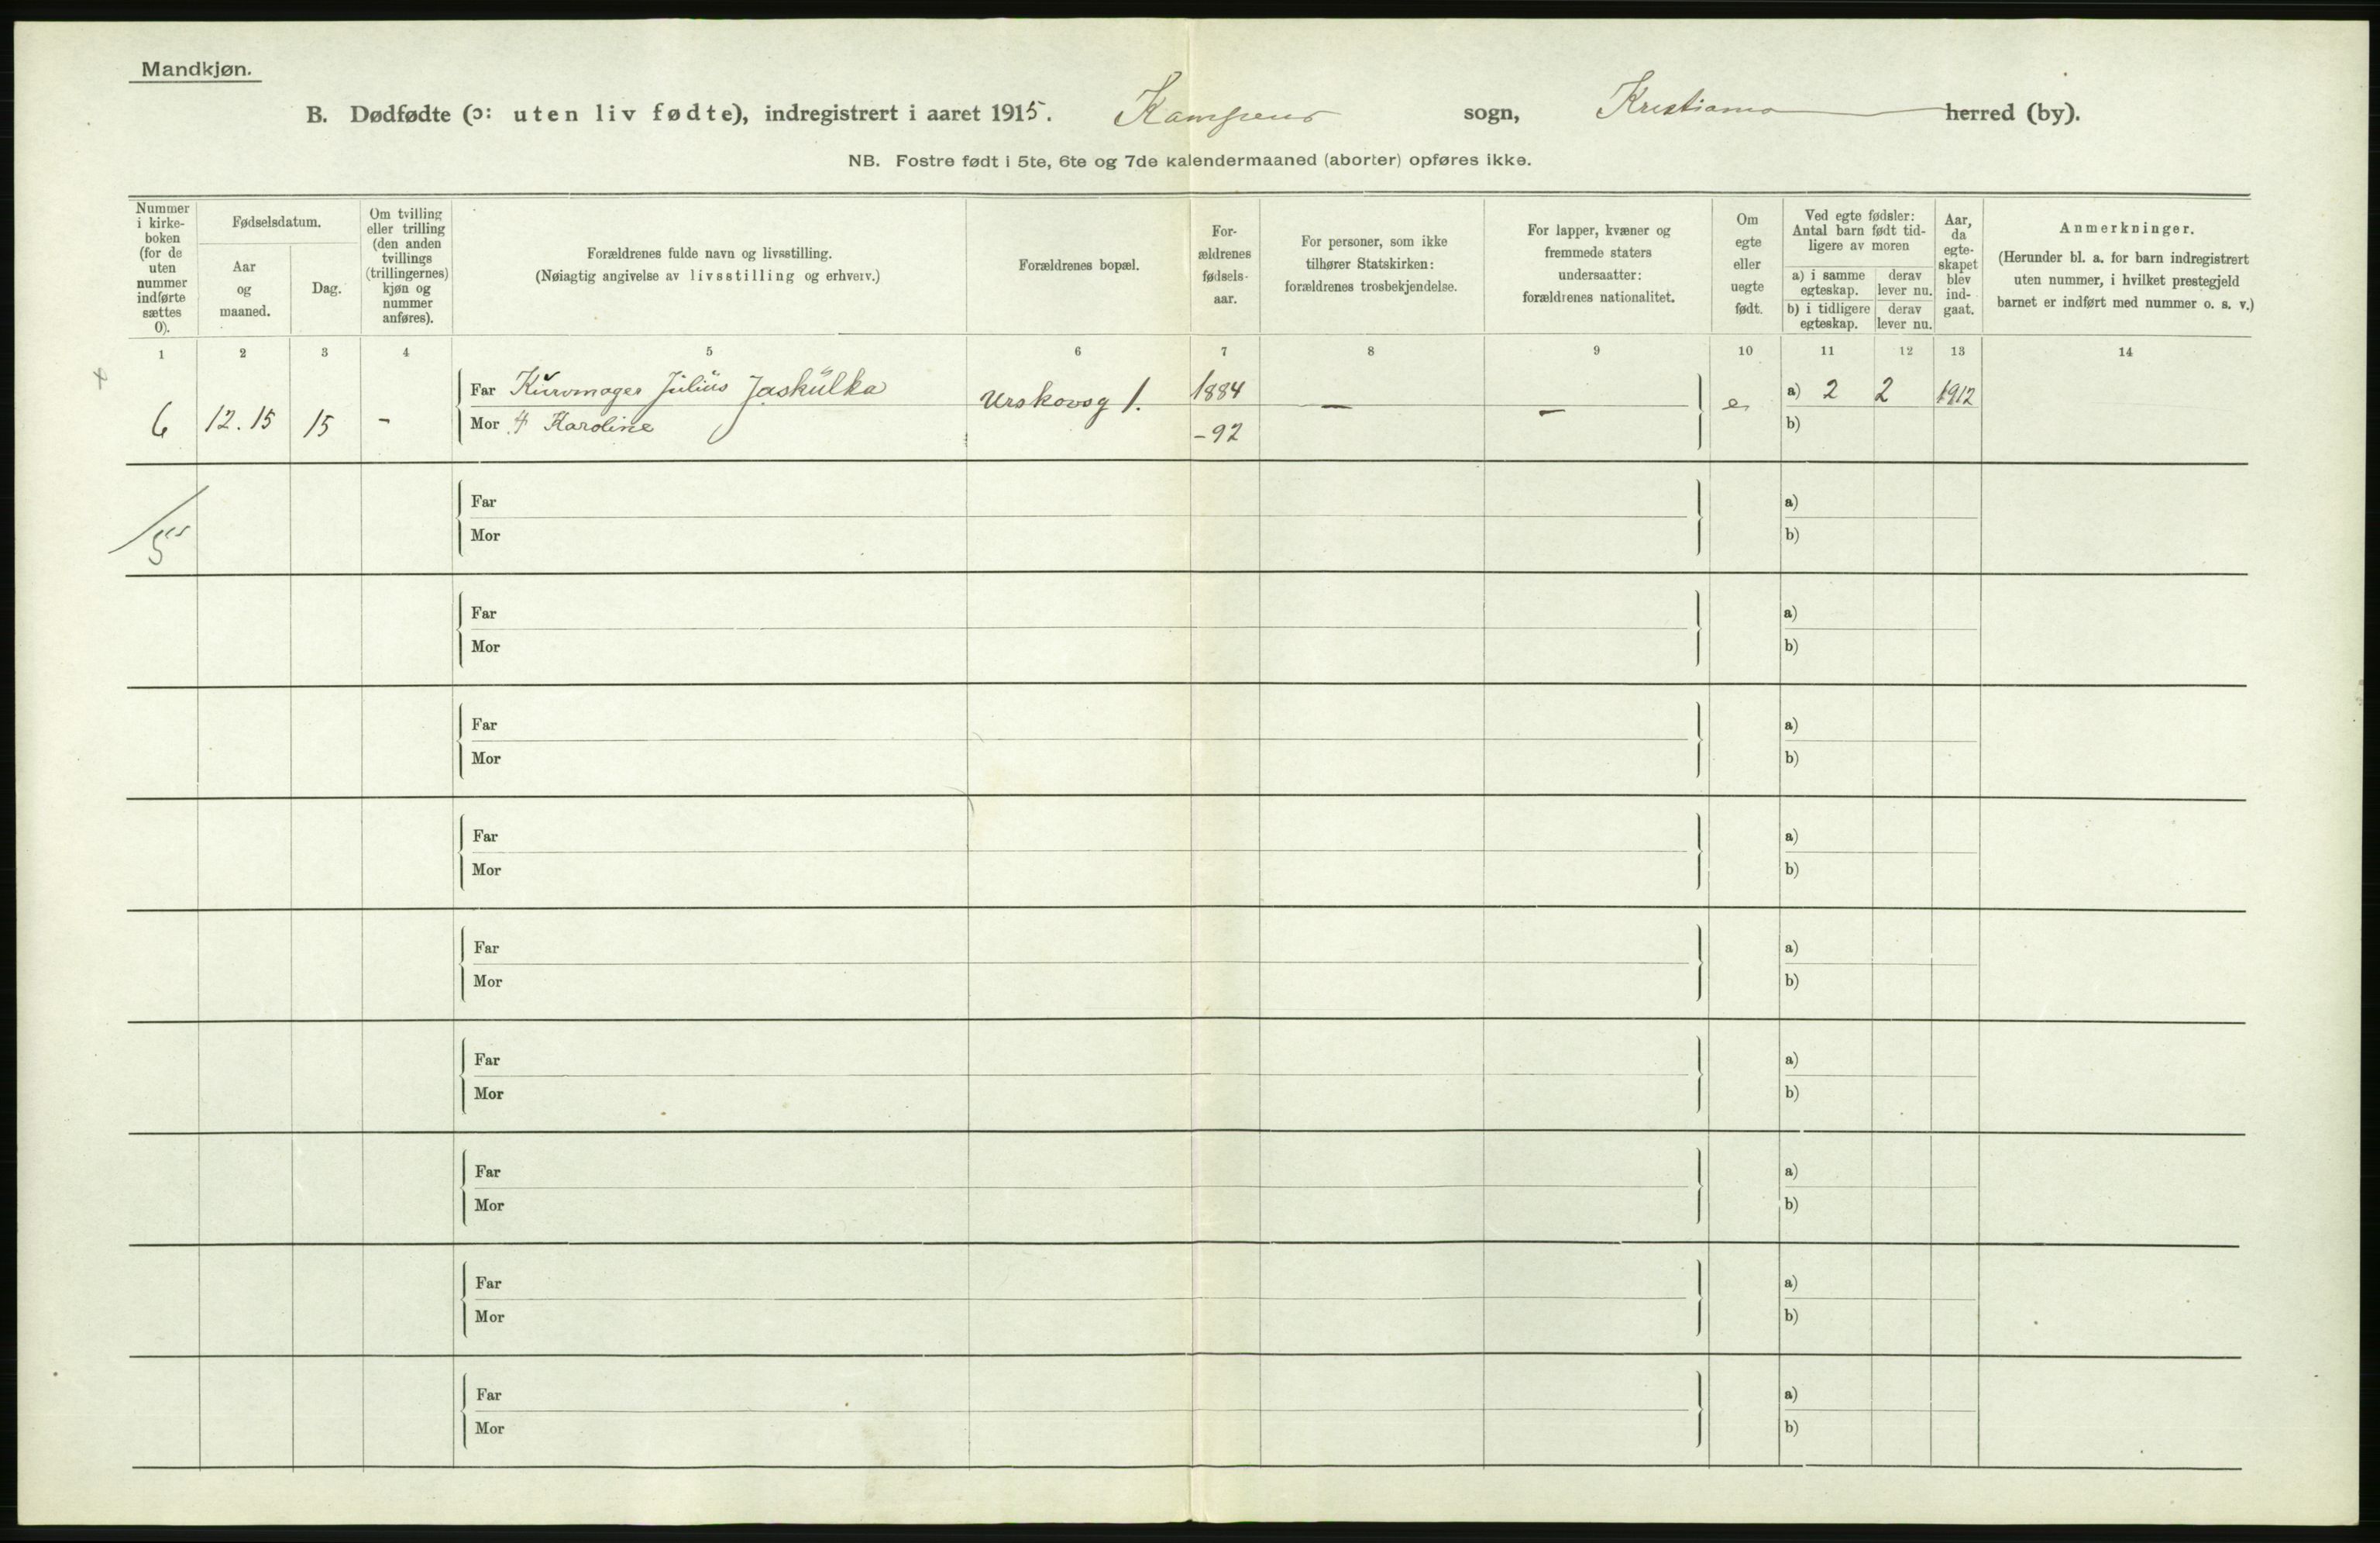 Mandkjøn.
B. Dødfødte (ɔ: uten liv fødte), indregistrert i aaret 1915. Kampens sogn, Kristiania herred (by).
NB. Fostre født i 5te, 6te og 7de kalendermaaned (aborter) opføres ikke.
Nummer
i kirke-
boken
(for de
uten
nummer
indførte
sættes
0).
Fødselsdatum.
Aar
og
maaned.
Dag.
Om tvilling
eller trilling
(den anden
tvillings
(trillingernes)
kjøn og
nummer
anføres).
Forældrenes fulde navn og livsstilling.
(Nøiagtig angivelse av livsstilling og erhverv.)
Forældrenes bopæl.
For-
ældrenes
fødsels-
aar.
For personer, som ikke
tilhører Statskirken:
forældrenes trosbekjendelse.
For lapper, kvæner og
fremmede staters
undersaatter:
forældrenes nationalitet.
Om
egte
eller
uegte
født.
Ved egte fødsler:
Antal barn født tid-
ligere av moren
a) i samme
egteskap.
derav
lever nu.
b) i tidligere
egteskap.
derav
lever nu.
Aar,
da
egte-
skapet
blev
ind-
gaat.
Anmerkninger.
(Herunder bl. a. for barn indregistrert
uten nummer, i hvilket prestegjeld
barnet er indført med nummer o. s. v.)
1 2 3 4 5 6 7 8 9 10 11 12 13 14
Far Kurvmager Julius Jaskulka Urskovsg 1. 1884 — — e a) 2 2 1912
6 12.15 15 - Mor Karoline -92 b)
Far a)
Mor b)
Far a)
Mor b)
Far a)
Mor b)
Far a)
Mor b)
Far a)
Mor b)
Far a)
Mor b)
Far a)
Mor b)
Far a)
Mor b)
Far a)
Mor b)